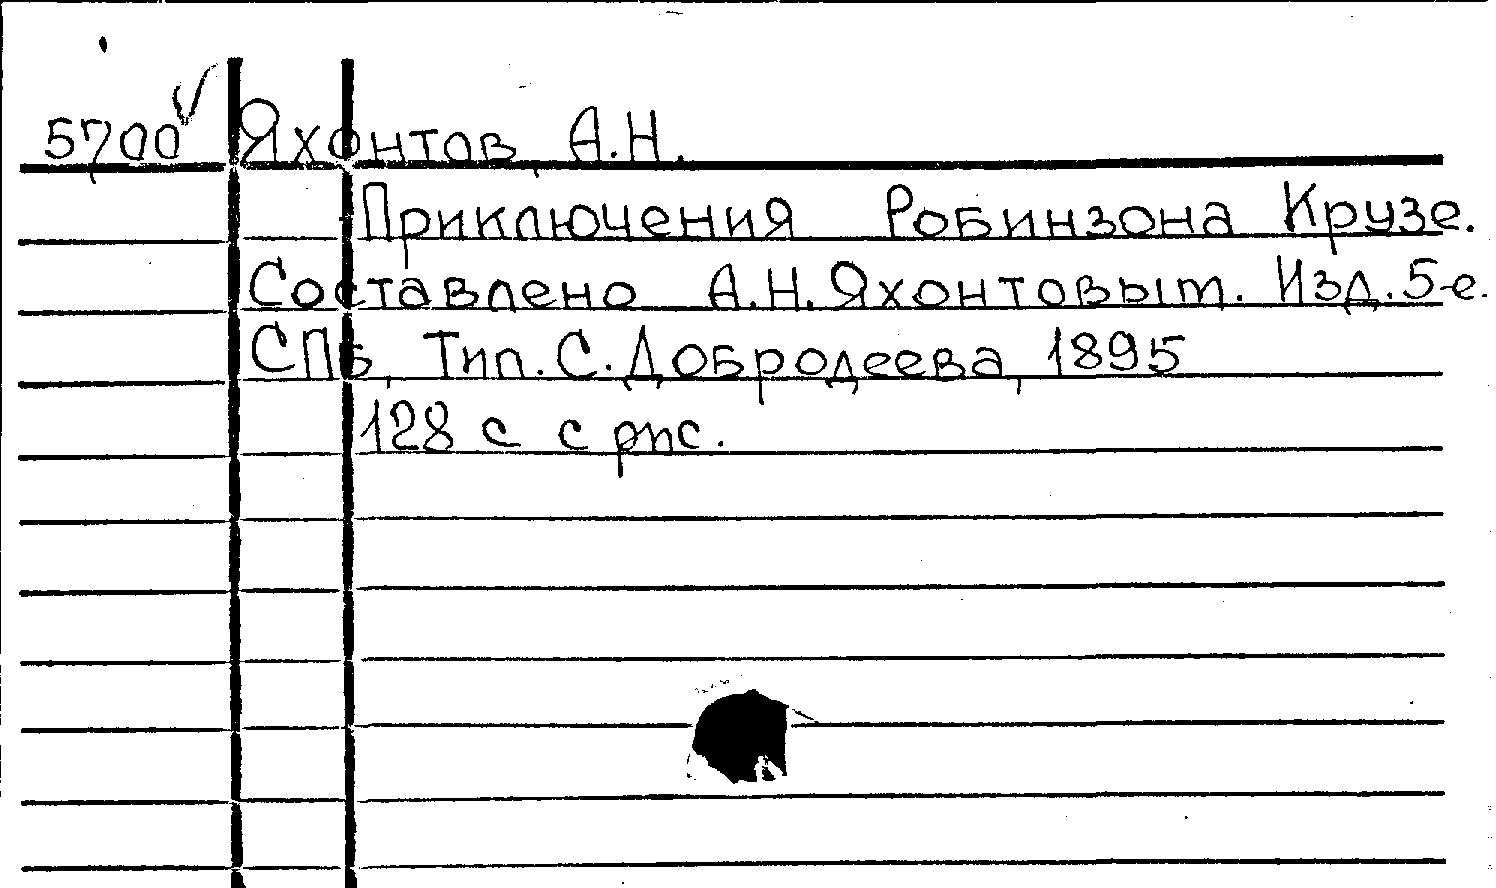 5700 Яхонтов, А.Н.
Приключения Робинзона Крузе.
Составлено А.Н.Яхонтовым. Изд.5-е.
СПБ, Тип.С.Добродеева, 1895
128 с с рис.